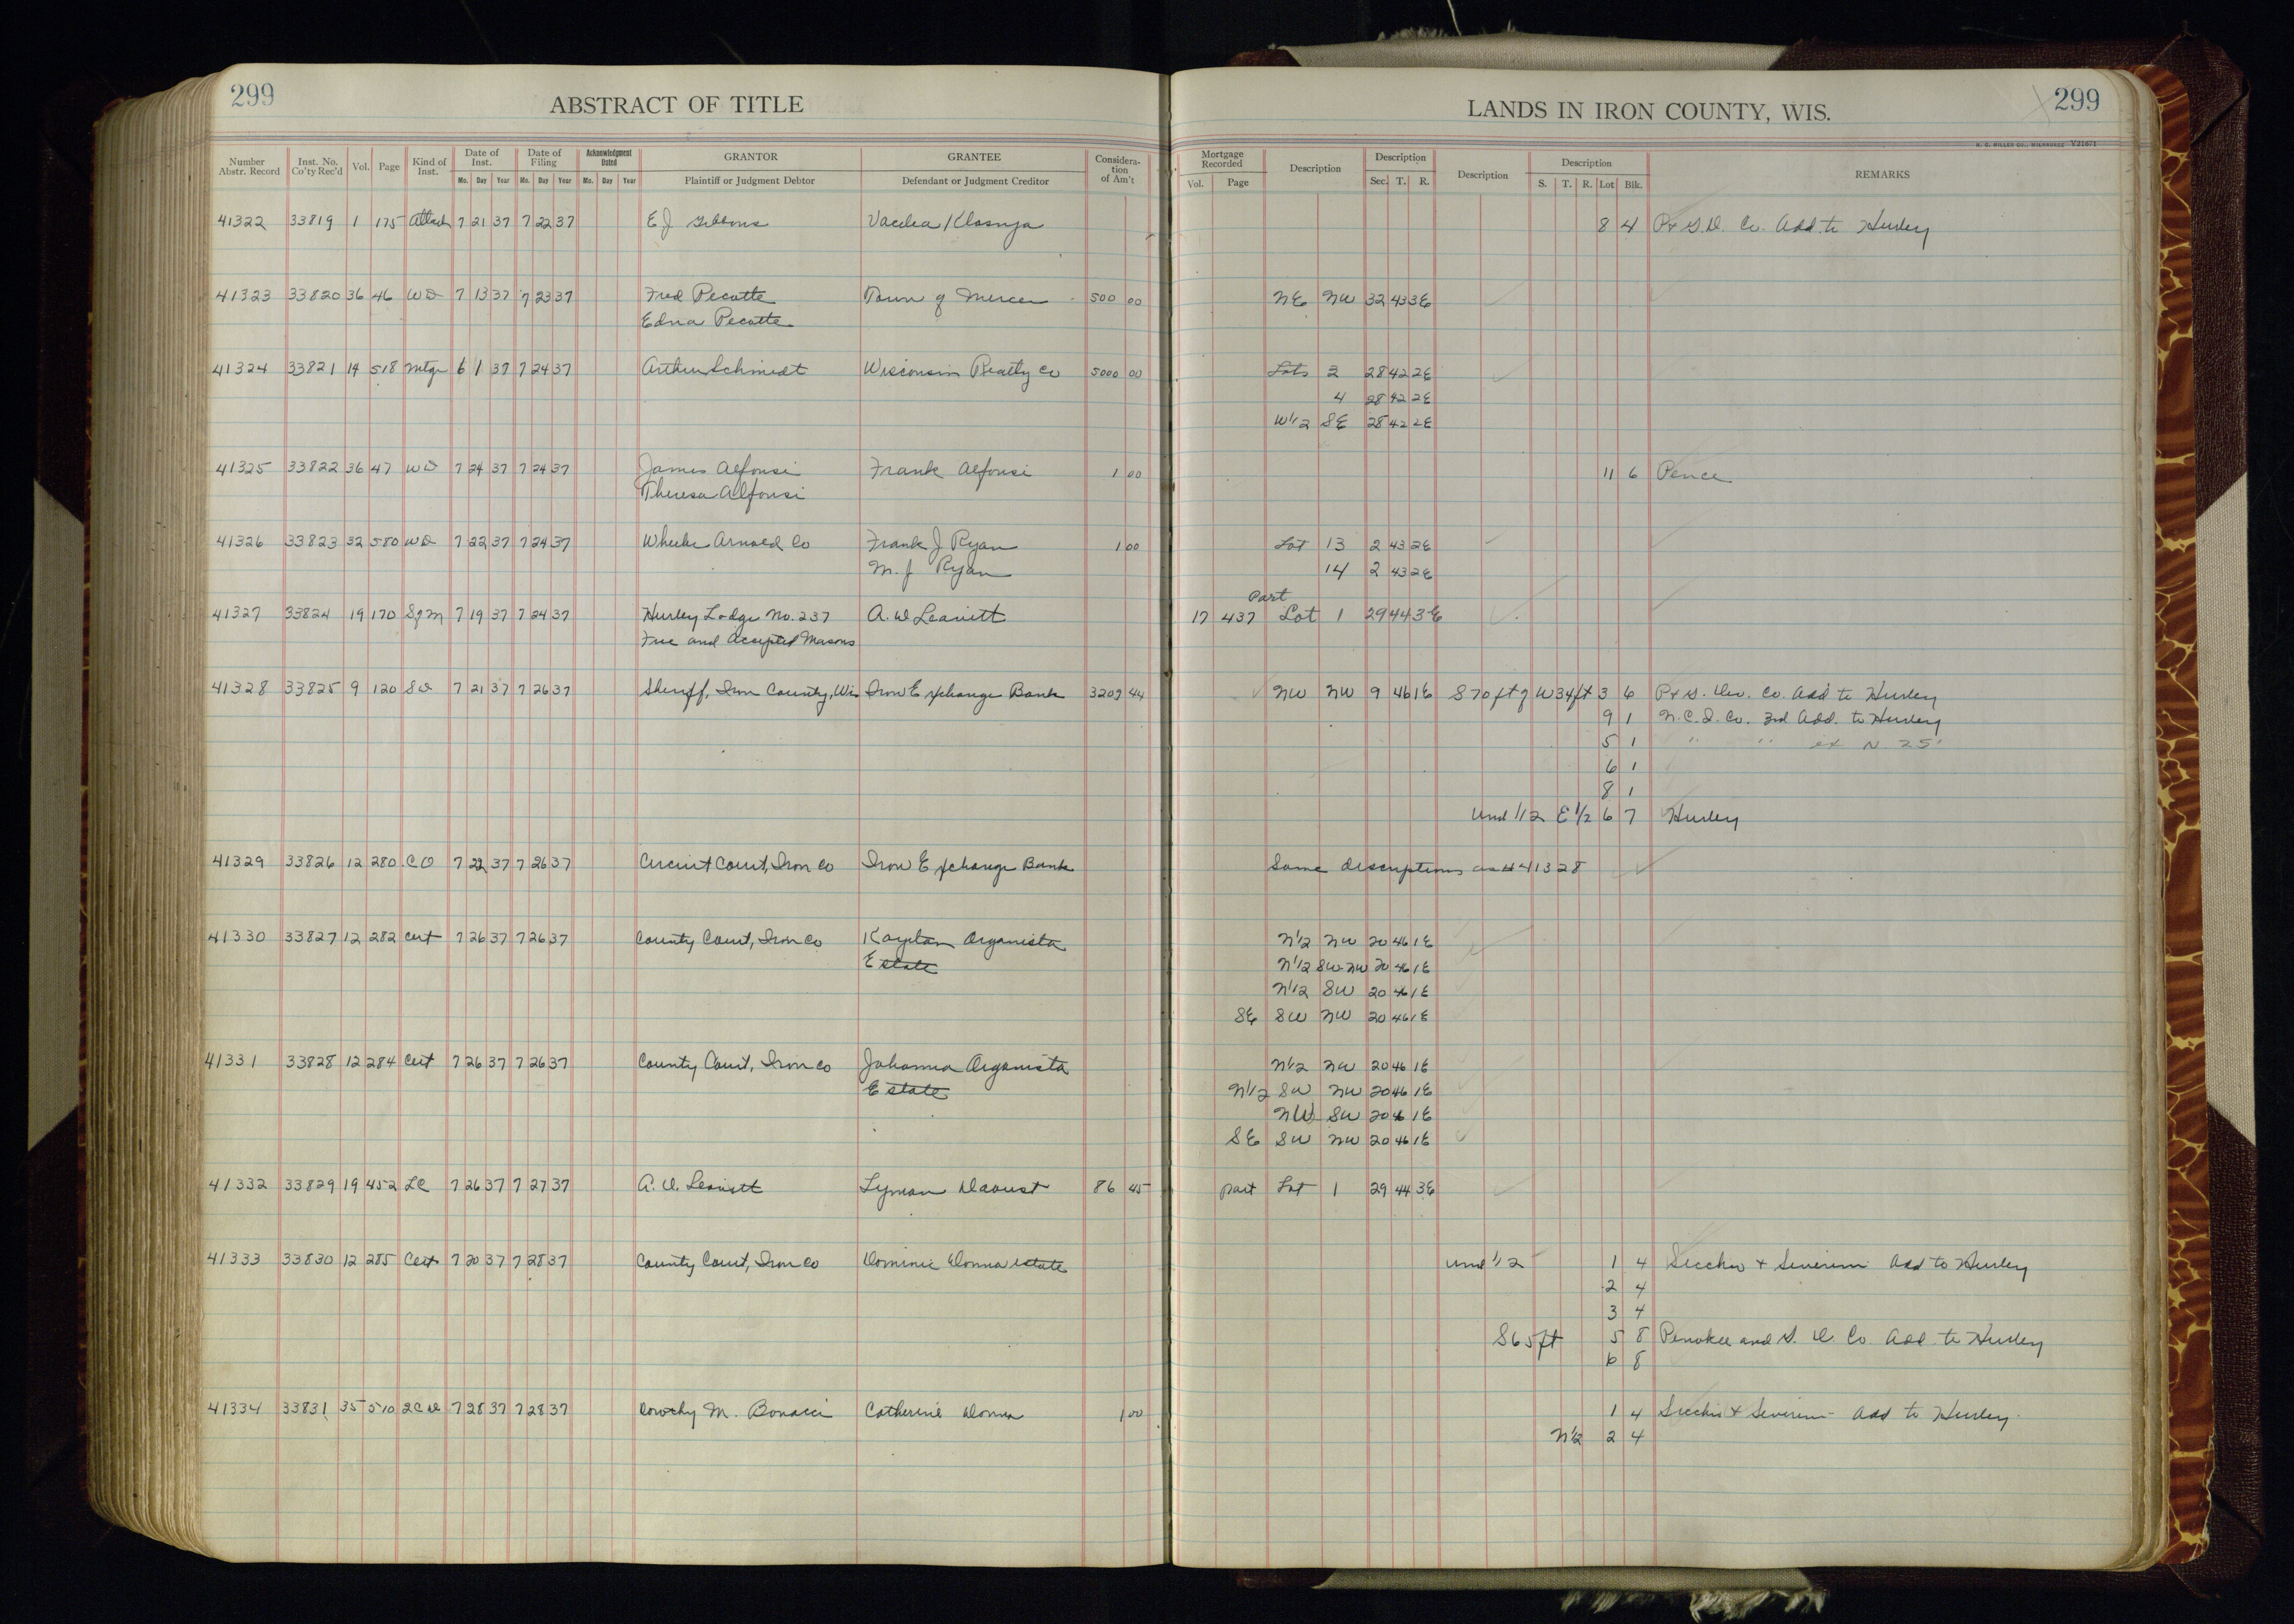 299
ABSTRACT OF TITLE
LANDS IN IRON COUNTY, WIS.
299
H. C. MILLER CO., MILWAUKEE V21671
Number Abstr. Record Inst. No. Co'ty Rec'd Vol. Page Kind of Inst. Date of Inst. Date of Filing Acknowledgment Dated GRANTOR GRANTEE Considera-tion of Am't Mortgage Recorded Description Description Description Description REMARKS
Mo. Day Year Mo. Day Year Mo. Day Year Plaintiff or Judgment Debtor Defendant or Judgment Creditor Vol. Page Sec. T. R. S. T. R. Lot Blk.
41322 33819 1 175 Attach 7 21 37 7 22 37 E J Gibbons 8 4 P+ G.D. Co. Add. to Hurley
41323 33820 36 46 WD 7 13 37 7 23 37 Fred Pecotte Town of Mercer 500 00 NE NW 32 43 3E
Edna Pecotte
41324 33821 14 518 Mtge 6 1 37 7 24 37 Arthur Schmidt Wisconsin Realty Co 5000 00 Lots 3 28 42 2E
4 28 42 2E
W1/2 SE 28 42 2E
41325 33822 36 47 WD 7 24 37 7 24 37 James Alfonsi Frank Alfonsi 1 00 11 6 Pence
Theresa Alfonsi
41326 33823 32 580 WD 7 22 37 7 24 37 Wheeler Arnold Co Frank J Ryan 1 00 Lot 13 2 43 2E
M. J Ryan 14 2 43 2E
part
41327 33824 19 170 SgM 7 19 37 7 24 37 Hurley Lodge No. 237 A. W Leavitt 17 437 Lot 1 29 44 3E
Free and Accepted Masons
41328 33825 9 120 SD 7 21 37 7 26 37 Sheriff, Iron County, Wis Iron Exchange Bank 3209 44 NW NW 9 46 1E S 70 ft of W 34 ft 3 6 P+ G. Dev. Co. Add to Hurley
9 1 N.C.I. Co. 3rd Add. to Hurley
5 1 " " ex N 25'
6 1
8 1
Und 1/12 E 1/2 6 7 Hurley
41329 33826 12 280 CO 7 22 37 7 26 37 Circuit Court, Iron Co Iron Exchange Bank Same descriptions as # 41328
41330 33827 12 282 Cert 7 26 37 7 26 37 County Court, Iron Co Kaydan Organista N1/2 NW 20 46 1E
Estate N1/2 SW-NW 20 46 1E
N1/2 SW 20 46 1E
SE SW NW 20 46 1E
41331 33828 12 284 Cert 7 26 37 7 26 37 County Court, Iron Co Johanna Organista N1/2 NW 20 46 1E
Estate N1/2 SW NW 20 46 1E
NW SW 20 46 1E
SE SW NW 20 46 1E
41332 33829 19 452 LC 7 26 37 7 27 37 A. W. Leavitt Lyman Daoust 86 45 part Lot 1 29 44 3E
41333 33830 12 285 Cert 7 20 37 7 28 37 County Court, Iron Co Dominic Donna Estate Und 1/2 1 4 Secchio + Severini Add to Hurley
2 4
3 4
S 65 ft 5 8 Penokee and G. D. Co Add. to Hurley
6 8
41334 33831 35 510 2CD 7 28 37 7 28 37 Dorothy M. Bonacci Catherine Donna 1 00 1 4 Secchio + Severini Add to Hurley
N1/2 2 4